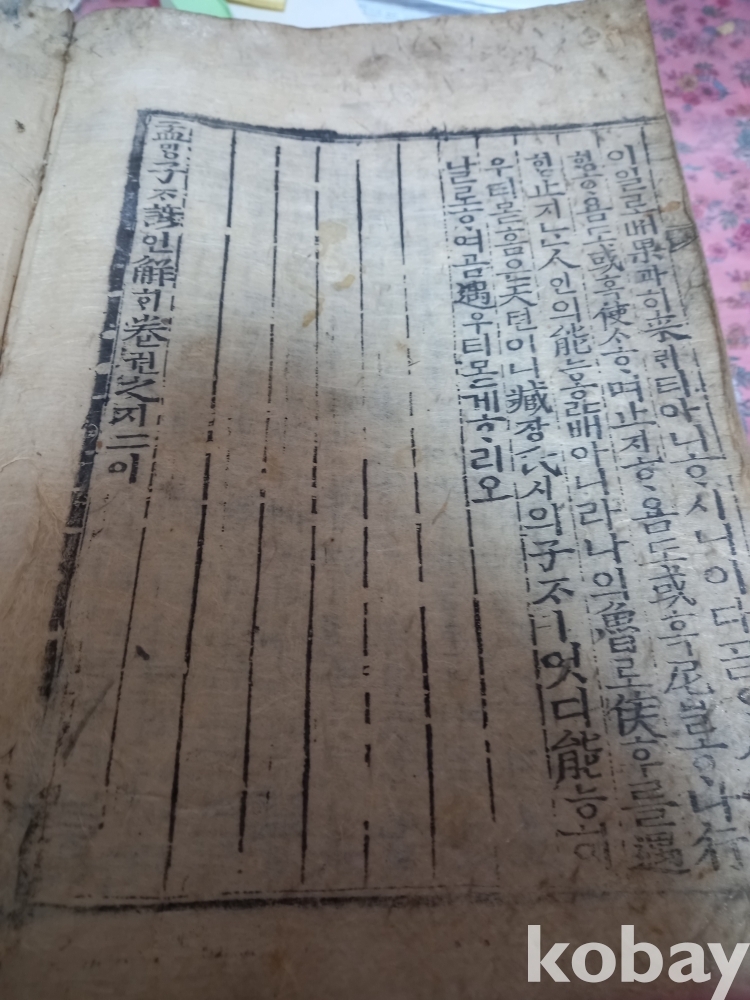 이일로ᄡᅥ果과히來ᄅᆡ티아니ᄒᆞ시니이다ᄀᆞᆯ
ᄒᆡᆼᄒᆞ욤도或혹使ᄉᆞᄒᆞ며止지ᄒᆞ욤도或혹尼닐ᄒᆞᄂᆞ니行
ᄒᆡᆼ止지ᄂᆞᆫ人인의能능ᄒᆞᆯ배아니라나의魯로侯후를遇
우티몯홈은天텬이니臧장氏시의子ᄌᆞㅣ엇디能능히
날로ᄒᆞ여곰遇우티몯게ᄒᆞ리오
孟ᄆᆡᆼ子ᄌᆞ諺언解ᄒᆡ卷권之지二이
kobay